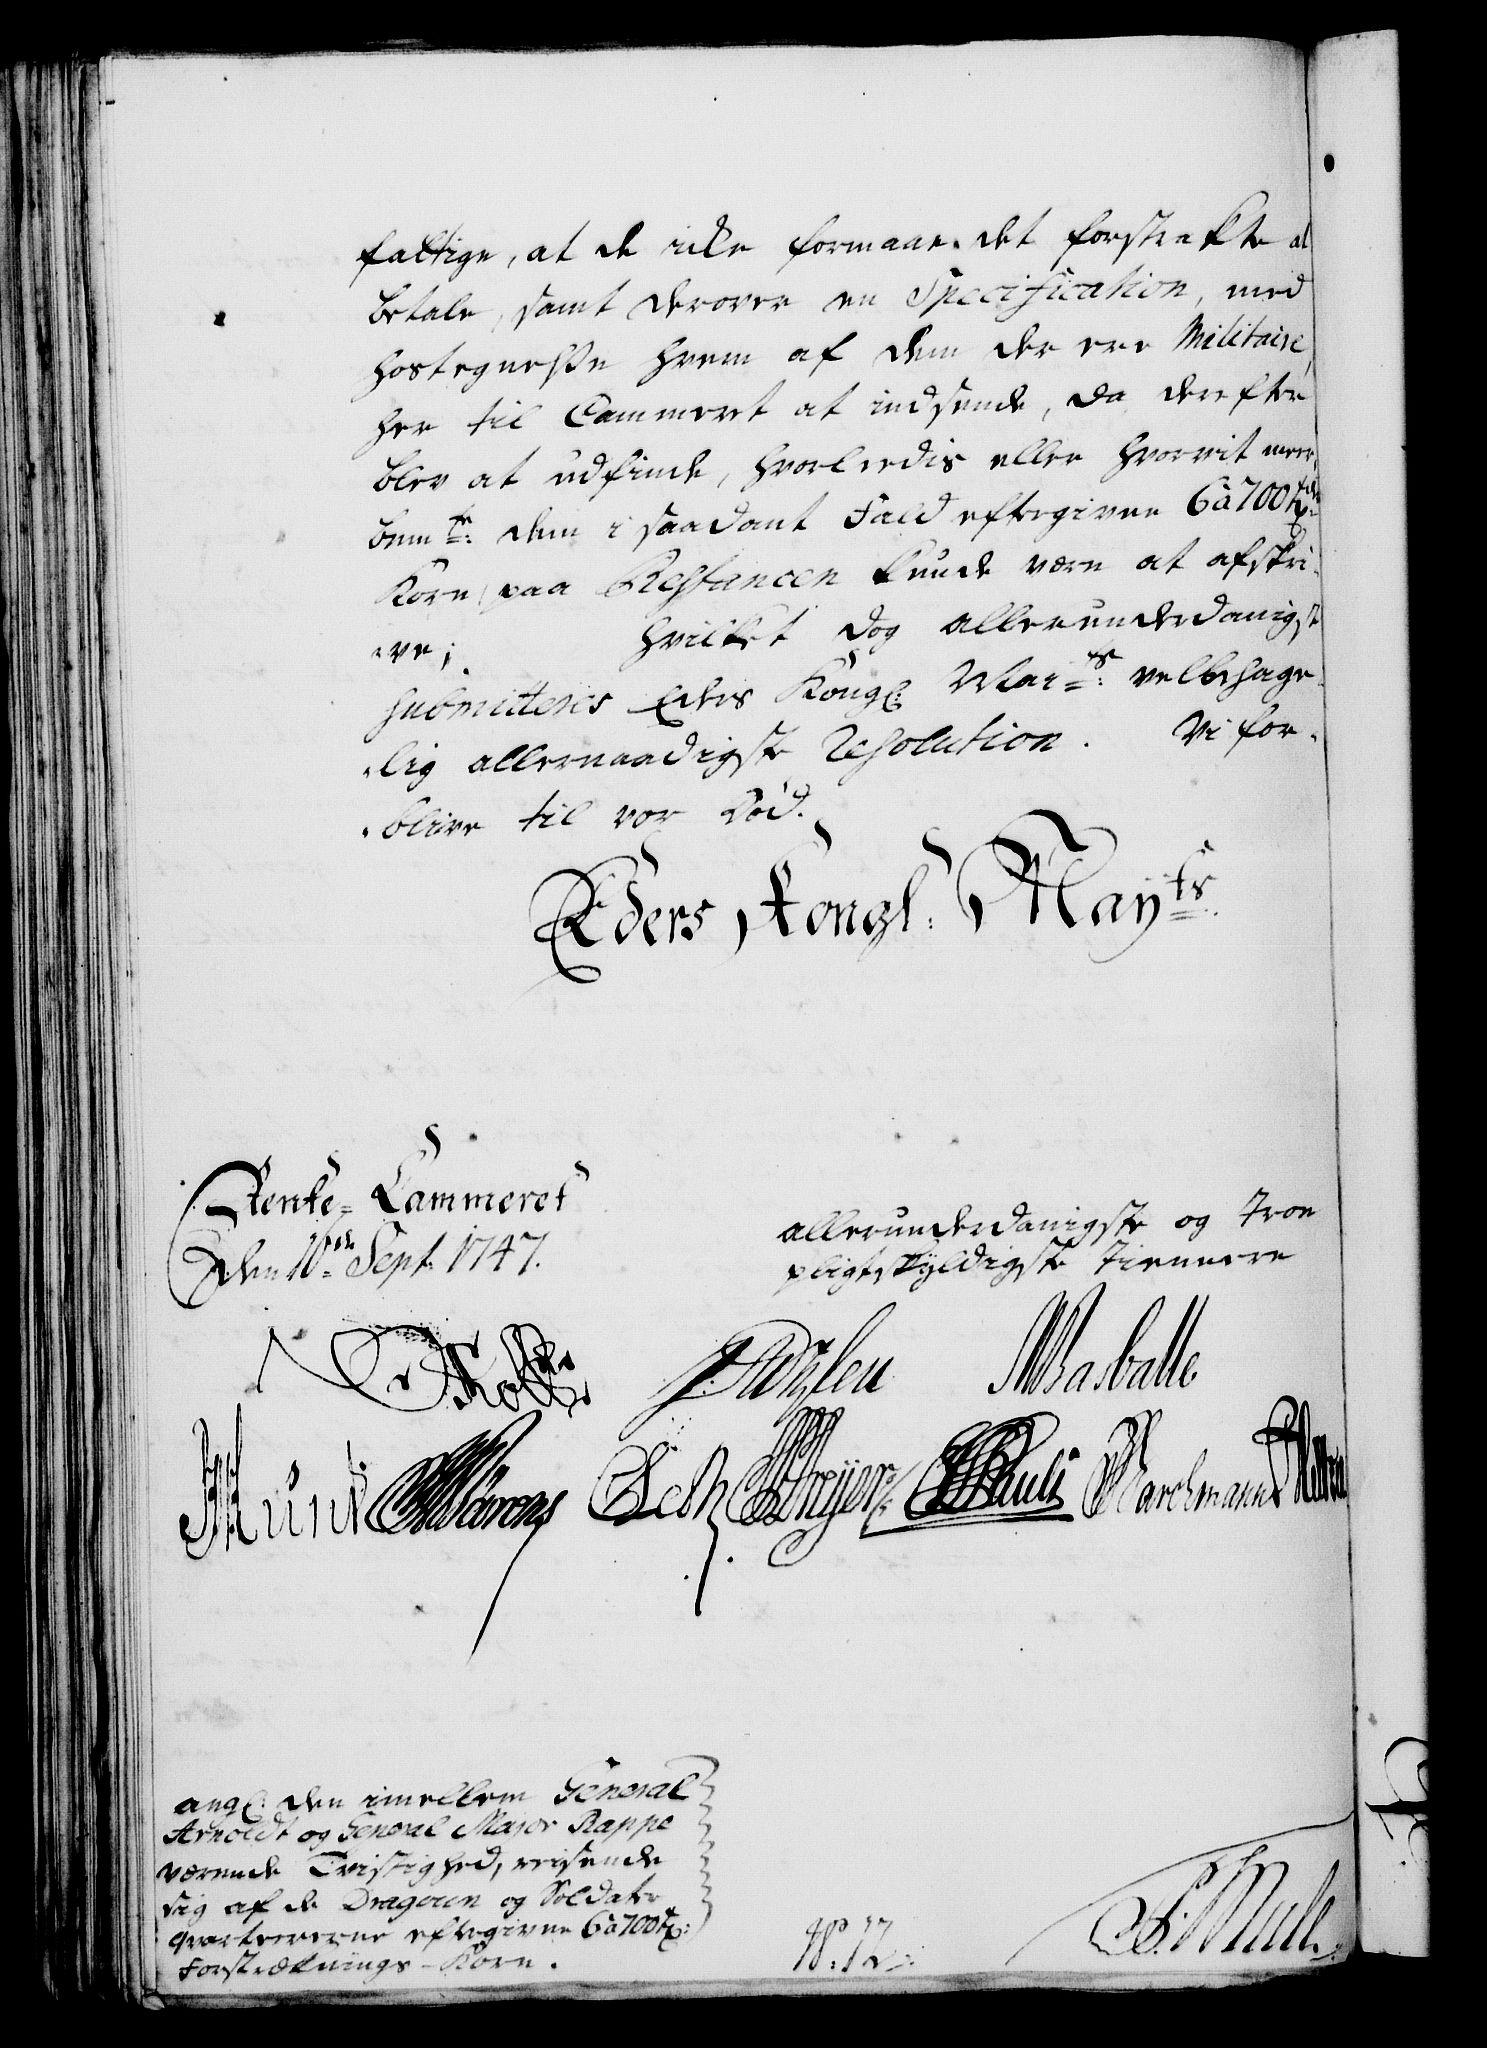 fattige, at de icke formaae det forstrakte at
betale, samt derover en Specification, med
hostegnelse hvem af dem der ere Militaire,
her til Cammeret at indsende, da derefter
blev at udfinde, hvorledis eller hvorvit meer
bemte: dem i saadant Fald eftergivne 6 à 700 Tdr:
Korn paa Restancen kunde være at afskri-
ve; hvilket dog allerunderdanigst
submitteres Eders Kongl: Mai:ts velbehage-
lig allernaadigste Resolution. Vi for-
blive til vor Død.
Eders Kongl: Mayts
Rente-Cammeret
den 16de Sept: 1747.
allerunderdanigste og troe
pligtskyldigste Tienere
Holst
Wartberg
Pauli Marchmann
angl: den imellem General
Arnoldt og General Major Rappe
værende Tvistighed, reisende
sig af de Dragoun og Soldate
qvartererne eftergivne 6 à 700 Tdr:
Forstræknings-Korn.
No: 12